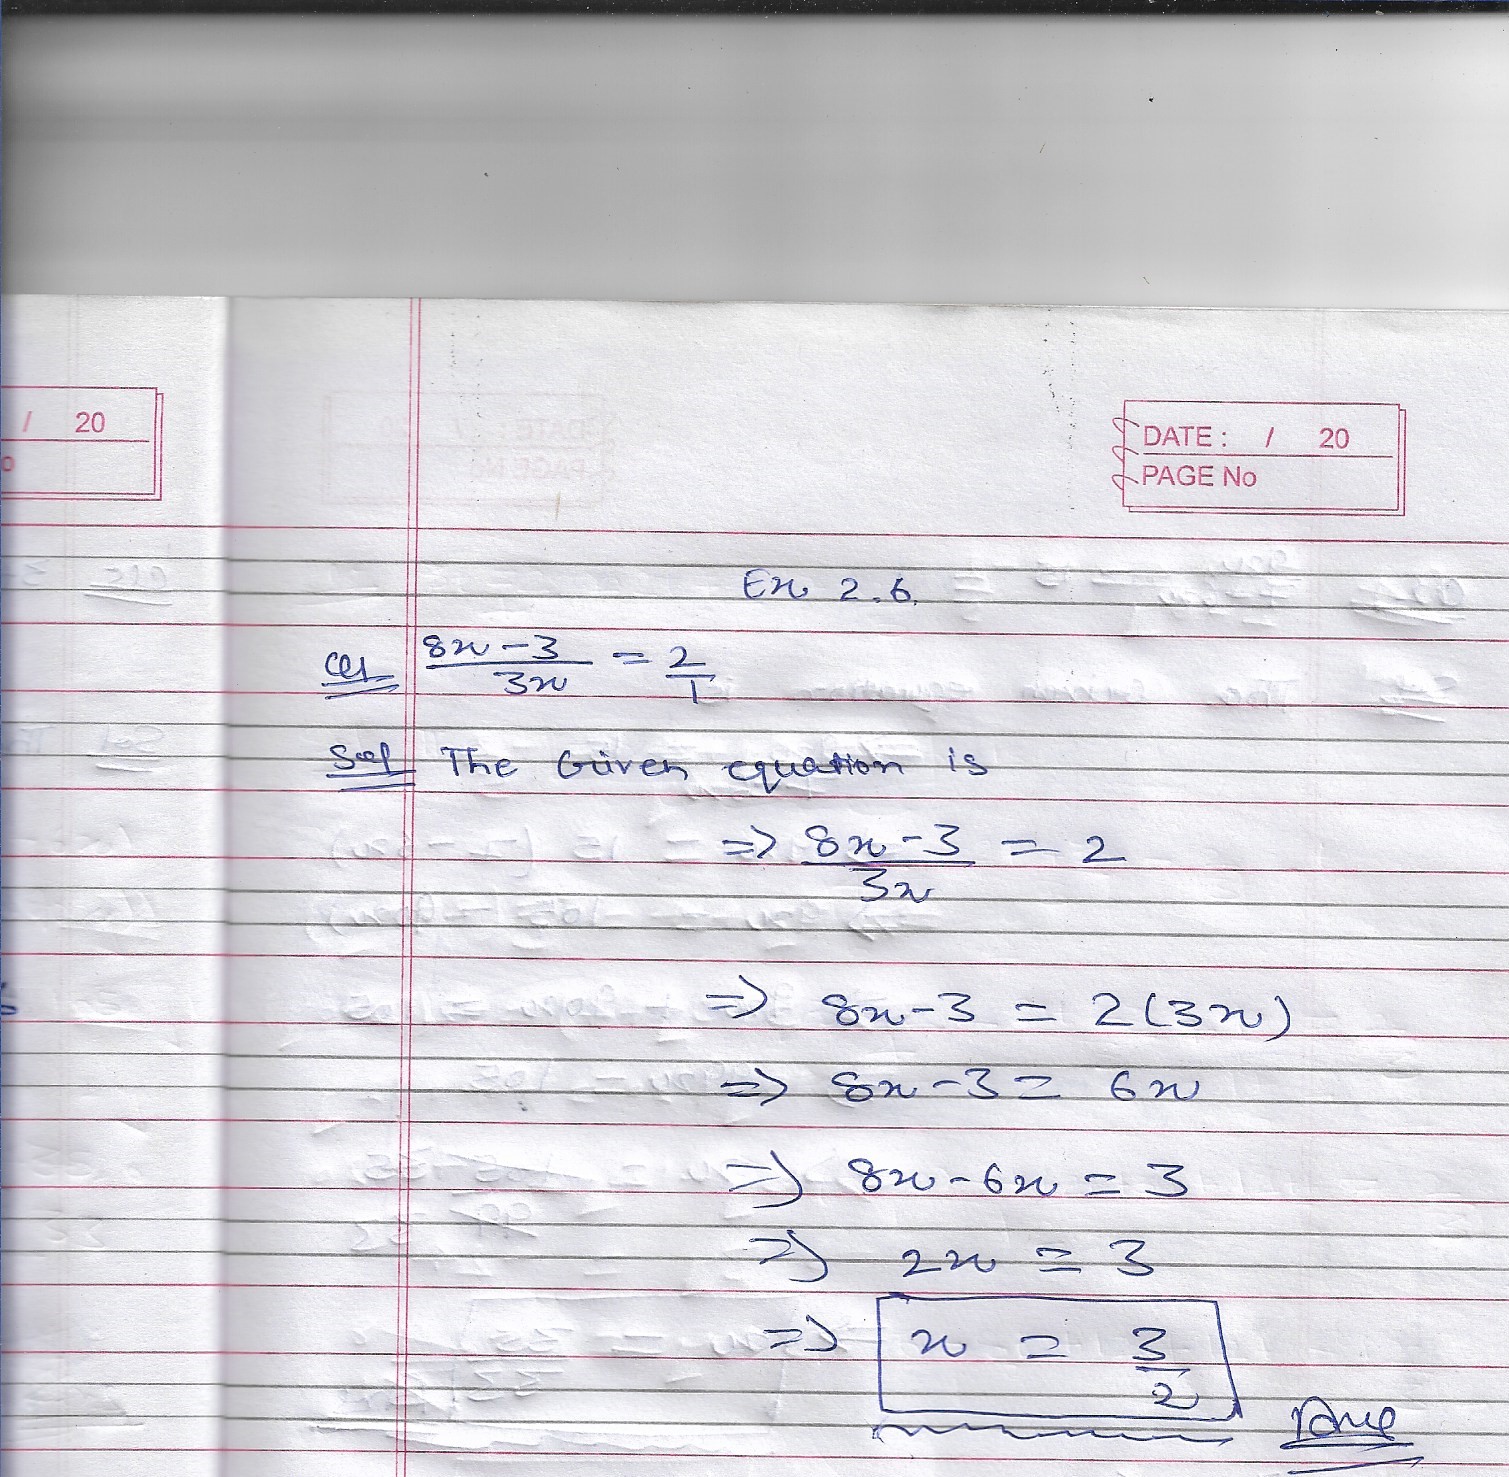 / 20
o
DATE : / 20
PAGE No
Ex 2.6.
Q1 8x-3/3x = 2/1
Sol The Given equation is
=> 8x-3/3x = 2
=> 8x-3 = 2(3x)
=> 8x-3 = 6x
=> 8x-6x = 3
=> 2x = 3
=> x = 3/2